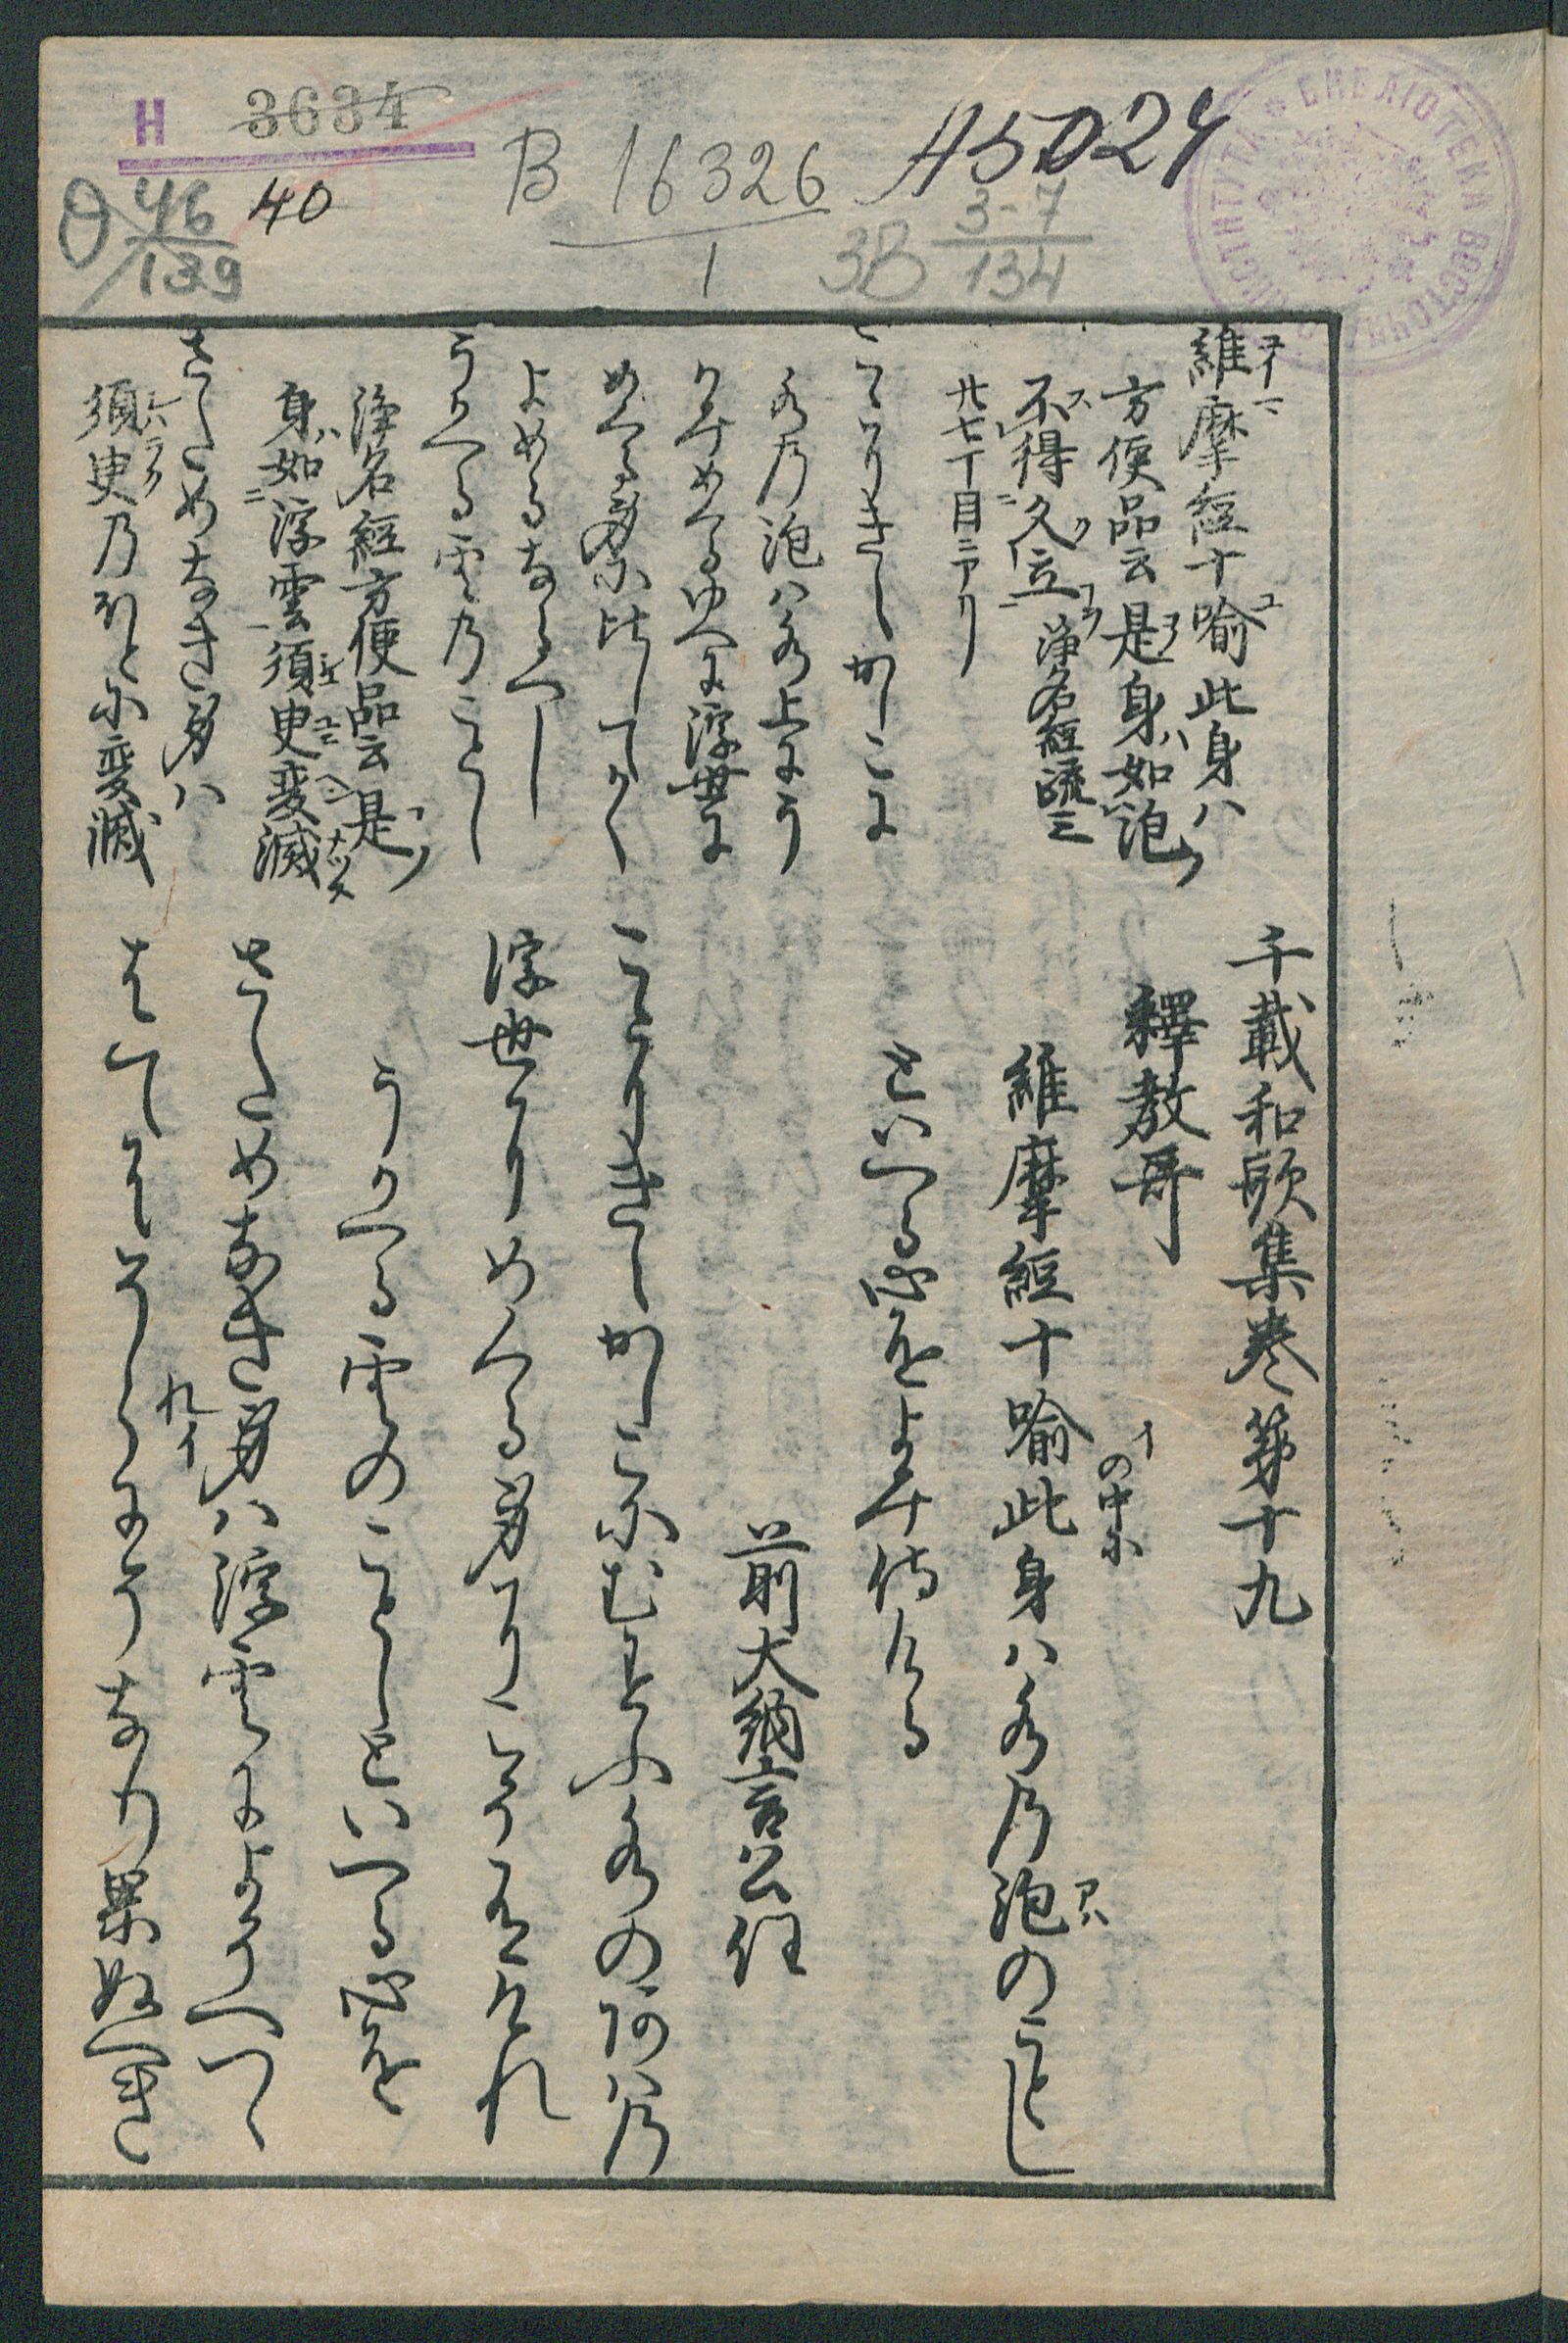 H 3634
40
46
139
B 16326
1
A5024
3B 3-7
134
БИБЛІОТЕКА
維摩經十喩此身ハ
方便品云是身如泡
不得久立 浄名經疏三
廿七丁目ニアリ
こゝにきえかしこに
水乃泡ハ水上にう
かみめくるゆへに浮世に
めくる身に比してかく
よめるなるへし
うかへる雲乃ことし
浄名經方便品云是
身如浮雲須臾変滅
さためなき身ハ
須臾乃ほとに変滅
千載和歌集巻第十九
釋教哥
の中に イ
維摩經十喩此身ハ水乃泡のことし
といへる心をよみ侍ける
前大納言公任
こゝにきえかしこにむすふ水のあハ乃
浮世にめくる身にこそ有けれ
うかへる雲のことしといへる心を
さためなき身ハ浮雲によそへつゝ
れイ
はてハそれにそなり果ぬへき